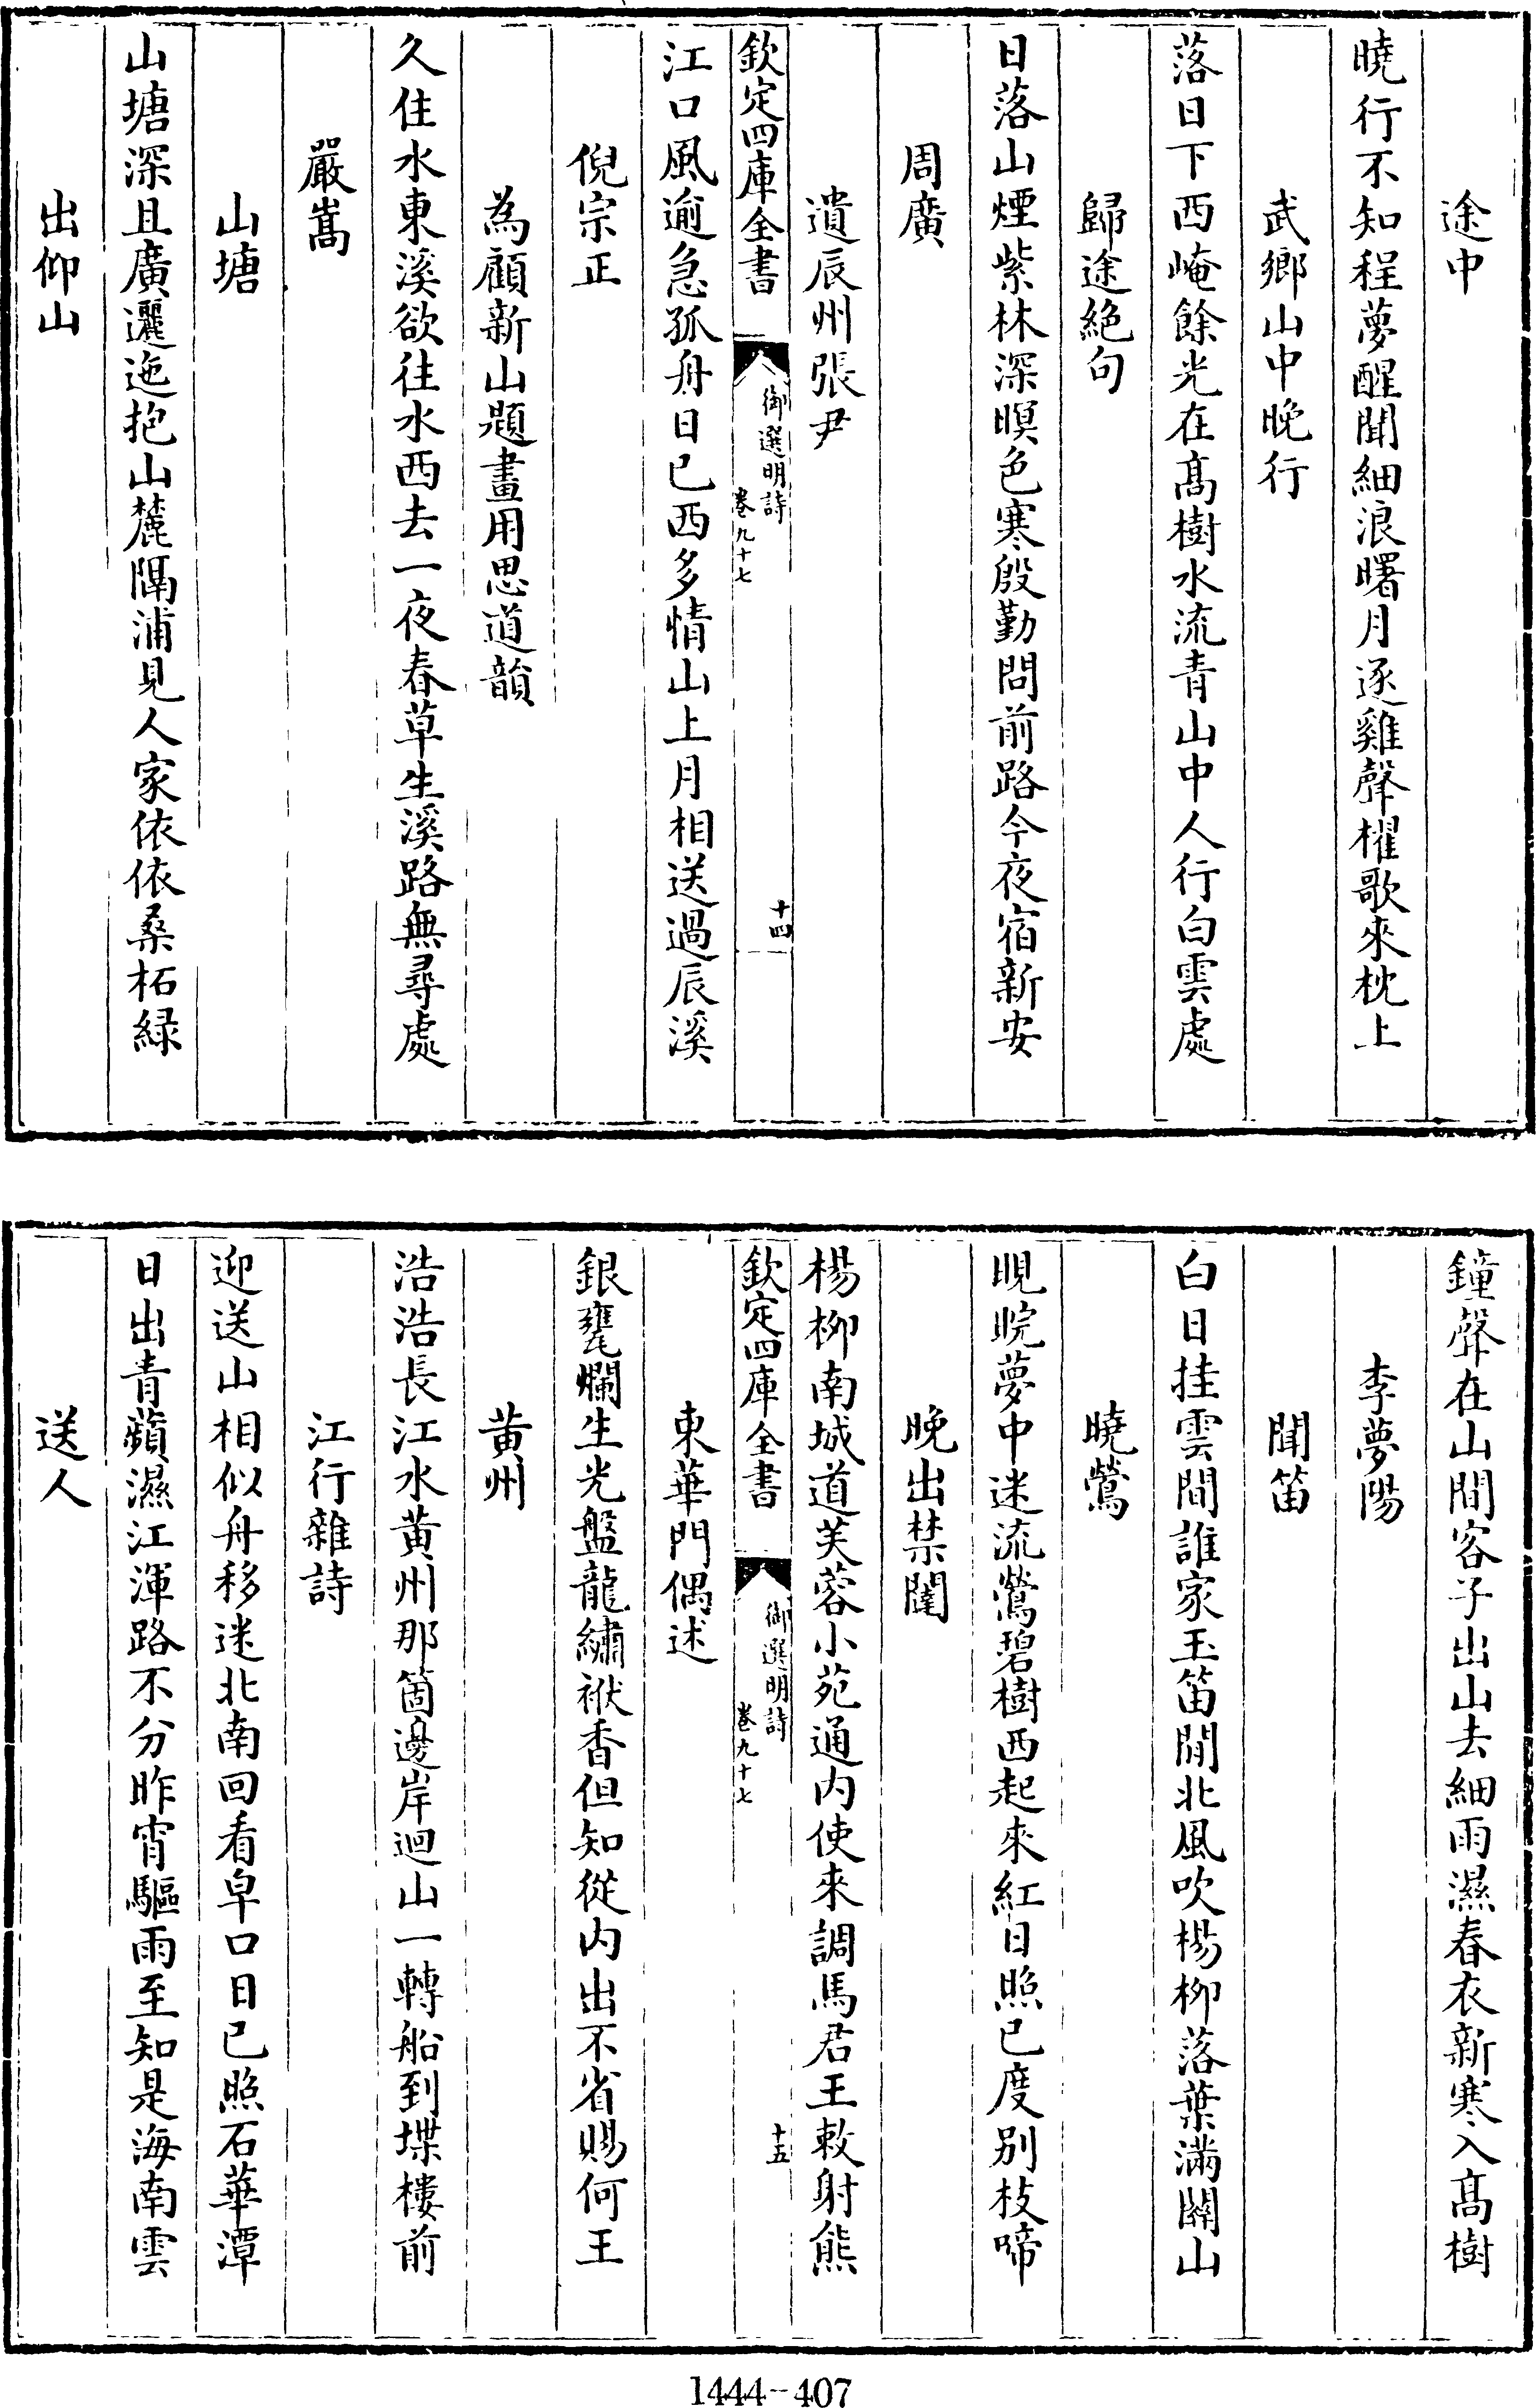 途中
曉行不知程夢醒聞細浪曙月逐雞聲櫂歌來枕上
武鄉山中晚行
落日下西崦餘光在髙樹水流青山中人行白雲處
歸途絶句
日落山煙紫林深暝色寒殷勤問前路今夜宿新安
周廣
遺辰州張尹
欽定四庫全書
御選明詩
卷九十七
十四
江口風逾急孤舟日已西多情山上月相送過辰溪
倪宗正
為顧新山題畫用思道韻
久住水東溪欲往水西去一夜春草生溪路無尋處
嚴嵩
山塘
山塘深且廣邐迤抱山麓隔浦見人家依依桑柘緑
出仰山
鐘聲在山間客子出山去細雨濕春衣新寒入髙樹
李夢陽
聞笛
白日挂雲間誰家玉笛閒北風吹楊柳落葉滿關山
曉鶯
睍睆夢中迷流鶯碧樹西起來紅日照已度别枝啼
晚出禁闥
楊柳南城道芙蓉小苑通内使來調馬君王敕射熊
欽定四庫全書
御選明詩
卷九十七
十五
東華門偶述
銀甕爛生光盤龍繡袱香但知從内出不省賜何王
黄州
浩浩長江水黄州那箇邊岸迴山一轉船到堞樓前
江行雜詩
迎送山相似舟移迷北南回看皁口日已照石華潭
日出青蘋濕江渾路不分昨宵驅雨至知是海南雲
送人
1444-407